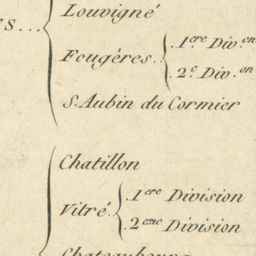 Louvigné
Fougères. 1.ere Div.on
2.e Div.on
S. Aubin du Cormier
Chatillon
Vitré. 1ere Division
2eme Division